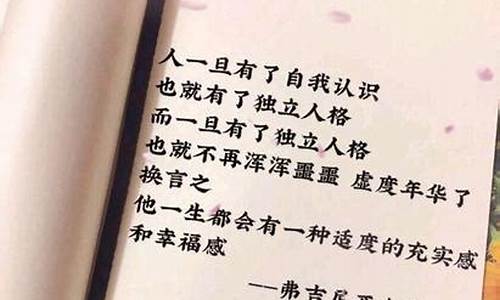 人一旦有了自我认识
也就有了独立人格
而一旦有了独立人格
也就不再浑浑噩噩 虚度年华了
换言之
他一生都会有一种适度的充实感
和幸福感
--弗吉尼亚